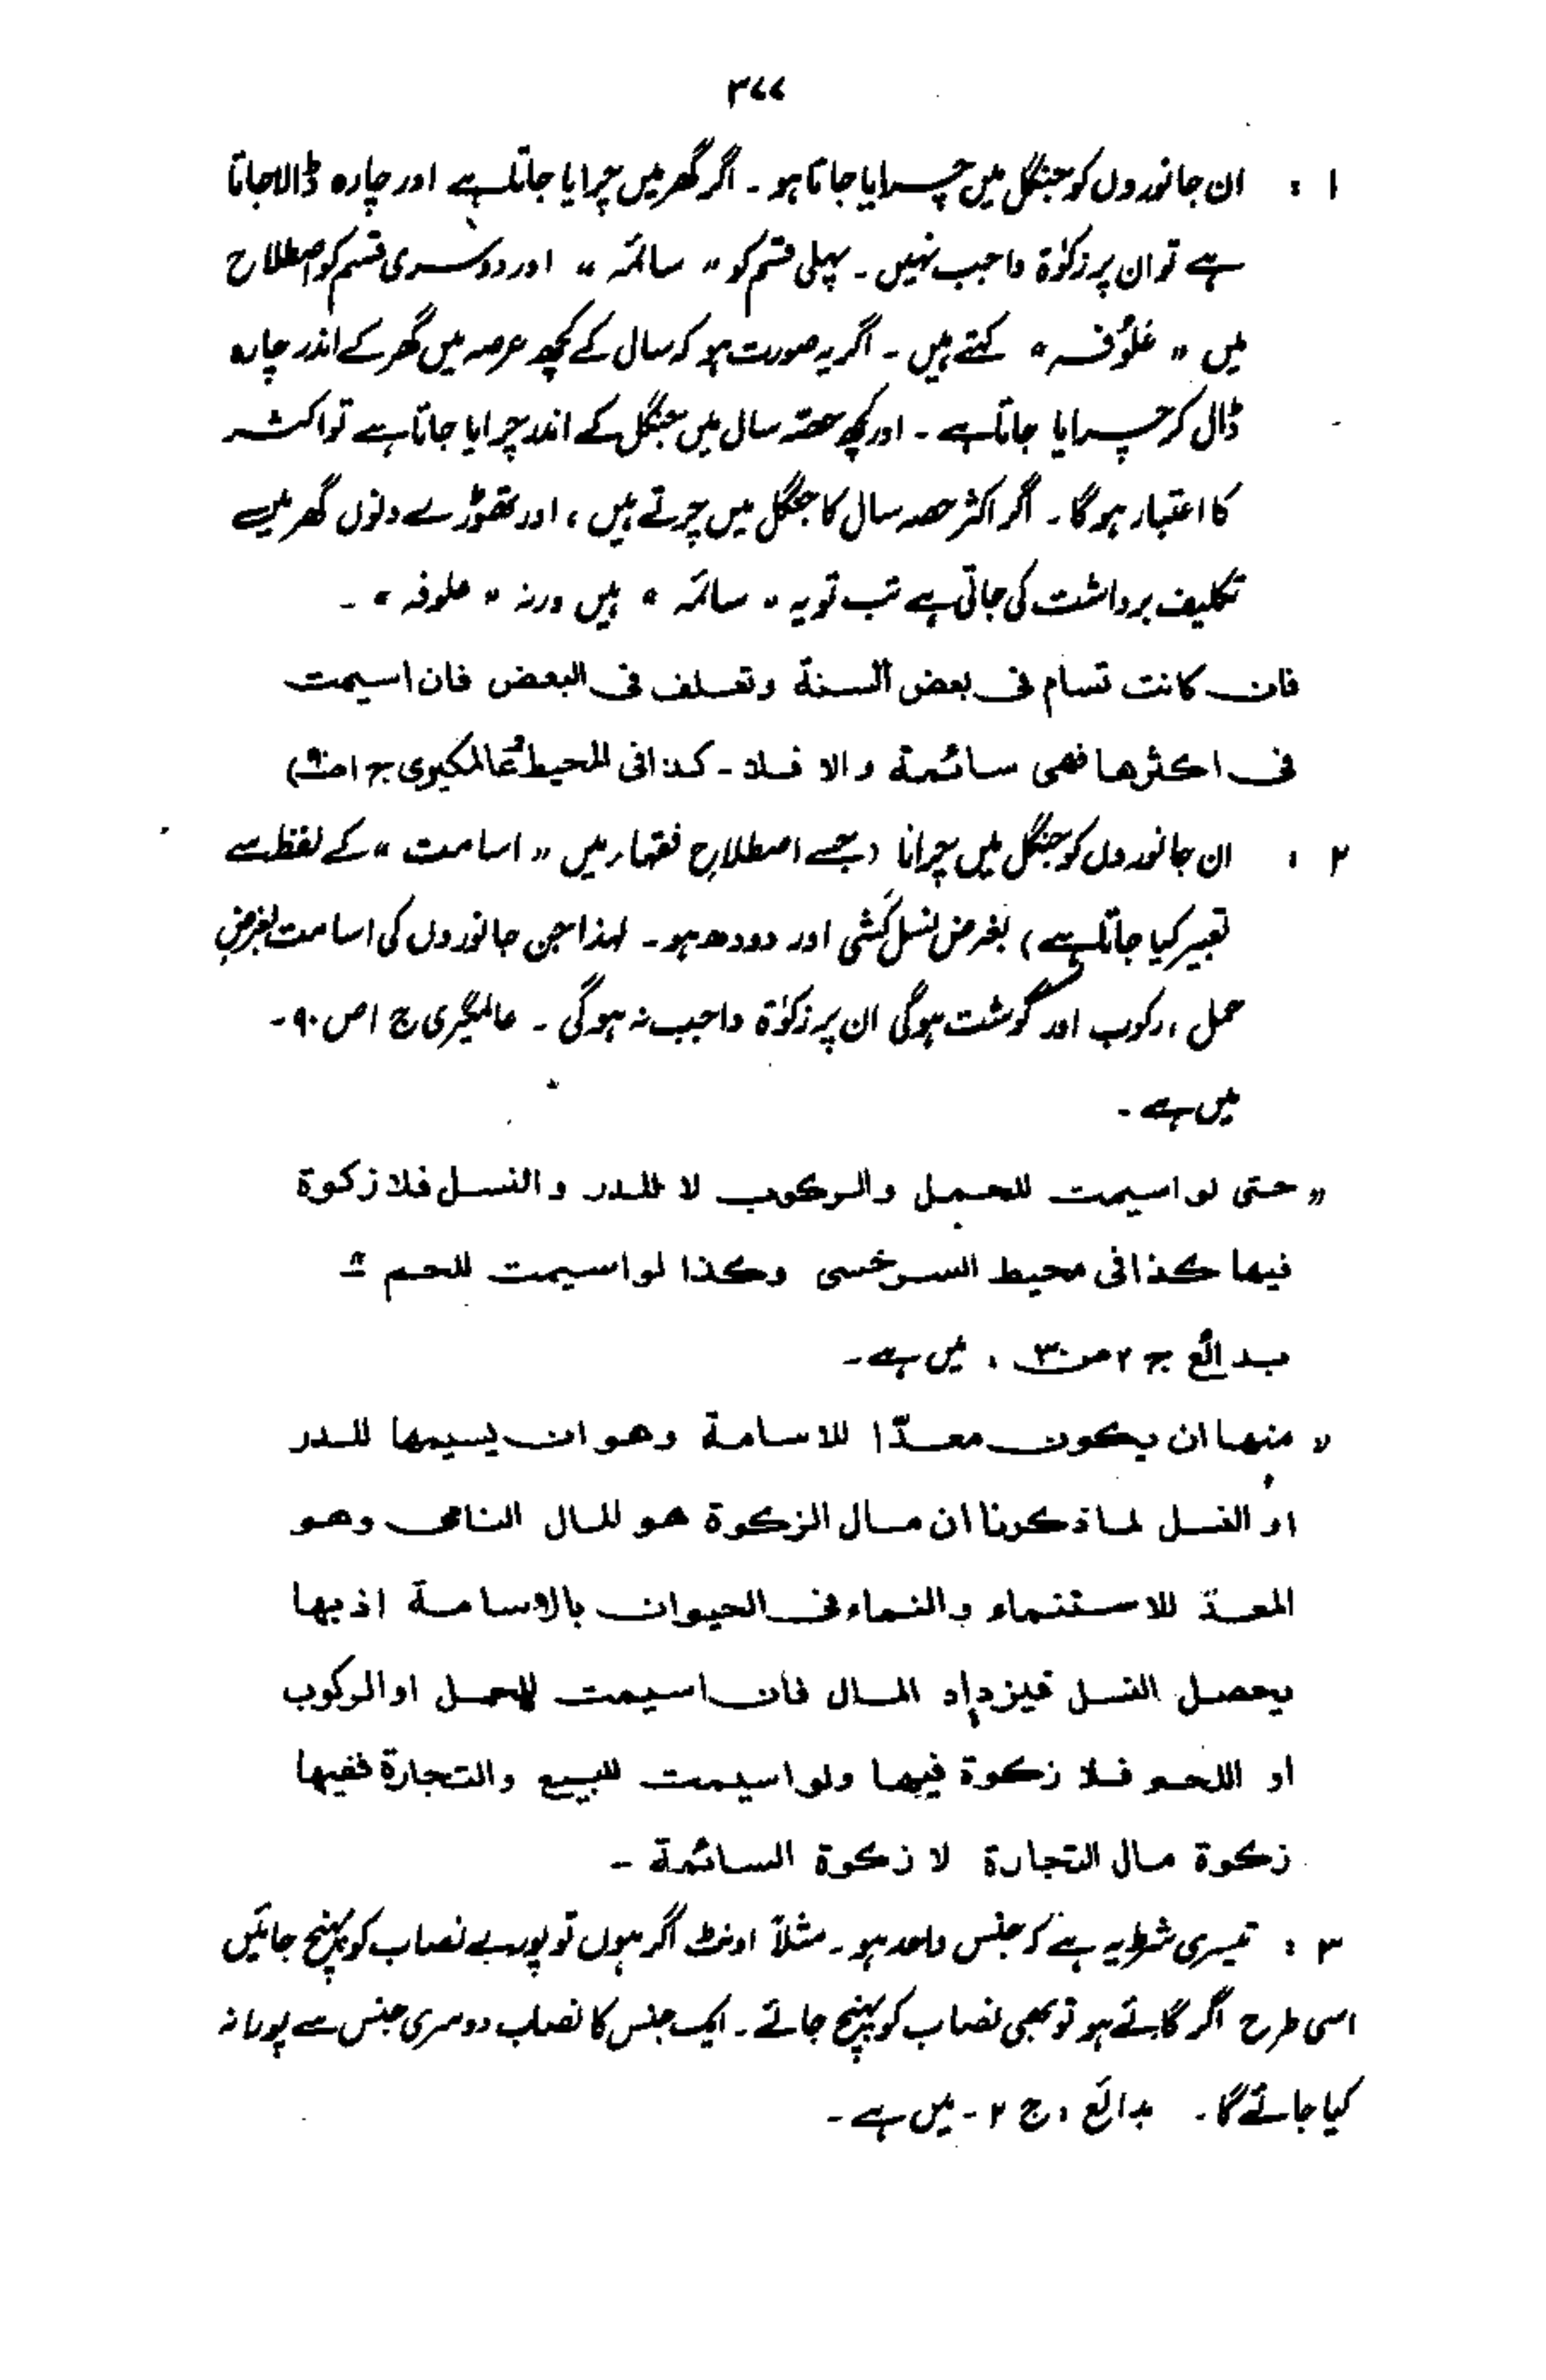 ۳۷۷
۱ : ان جانوروں کو جنگل میں چرایا جاتا ہو۔ اگر گھر میں چرایا جاتا ہے اور چارہ ڈالا جاتا
ہے تو ان پر زکوٰۃ واجب نہیں۔ پہلی قسم کو " سائمہ " اور دوسری قسم کو اصطلاح
میں " عَلُوفہ " کہتے ہیں۔ اگر یہ صورت ہو کہ سال کے کچھ عرصہ میں گھر کے اندر چارہ
ڈال کر چرایا جاتا ہے۔ اور کچھ حصّہ سال میں جنگل کے اندر چرایا جاتا ہے تو اکثر
کا اعتبار ہو گا۔ اگر اکثر حصہ سال کا جنگل میں چرتے ہیں، اور تھوڑے دنوں گھر میں
تکلیف برداشت کی جاتی ہے تب تو یہ " سائمہ " ہیں ورنہ " علوفہ "۔
فان کانت تسام فی بعض السنة وتعلف فی البعض فان اسیمت
فی اکثرها فهی سائمة والا فلا۔ کذا فی المحیط عالمگیری ج ۱ ص)
۲ : ان جانوروں کو جنگل میں چرانا (جسے اصطلاحِ فقہار میں " اسامت " کے لفظ سے
تعبیر کیا جاتا ہے) بغرض نسل کَشی اور دودھ ہو۔ لہذا جن جانوروں کی اسامت بغرضِ
حمل ، رکوب اور گوشت ہو گی ان پر زکوٰۃ واجب نہ ہو گی۔ عالمگیری ج ۱ ص ۹۰۔
میں ہے۔
" حتی لو اسیمت للحمل والرکوب لا للدر والنسل فلا زکوة
فیها کذا فی محیط السرخسی وکذا لو اسیمت للحم "
بدائع ج ۲ ص ۳۰ ، میں ہے۔
" منها ان یکون معدّا للاسامة وهو ان یسیمها للدر
او النسل لما ذکرنا ان مال الزکوة هو المال النامی وهو
المعدّ للاستنماء والنماء فی الحیوان بالاسامة اذ بها
یحصل النسل فیزداد المال فان اسیمت للحمل او الرکوب
او اللحم فلا زکوة فیها ولو اسیمت للبیع والتجارة ففیها
زکوة مال التجارة لا زکوة السائمة ۔
۳ : تیسری شرط یہ ہے کہ جنس واحد ہو۔ مثلاً اونٹ اگر ہوں تو پورے نصاب کو پہنچ جائیں
اسی طرح اگر گائے ہو تو بھی نصاب کو پہنچ جائے۔ ایک جنس کا نصاب دوسری جنس سے پورا نہ
کیا جائے گا۔ بدائع ، ج ۲۔ میں ہے۔